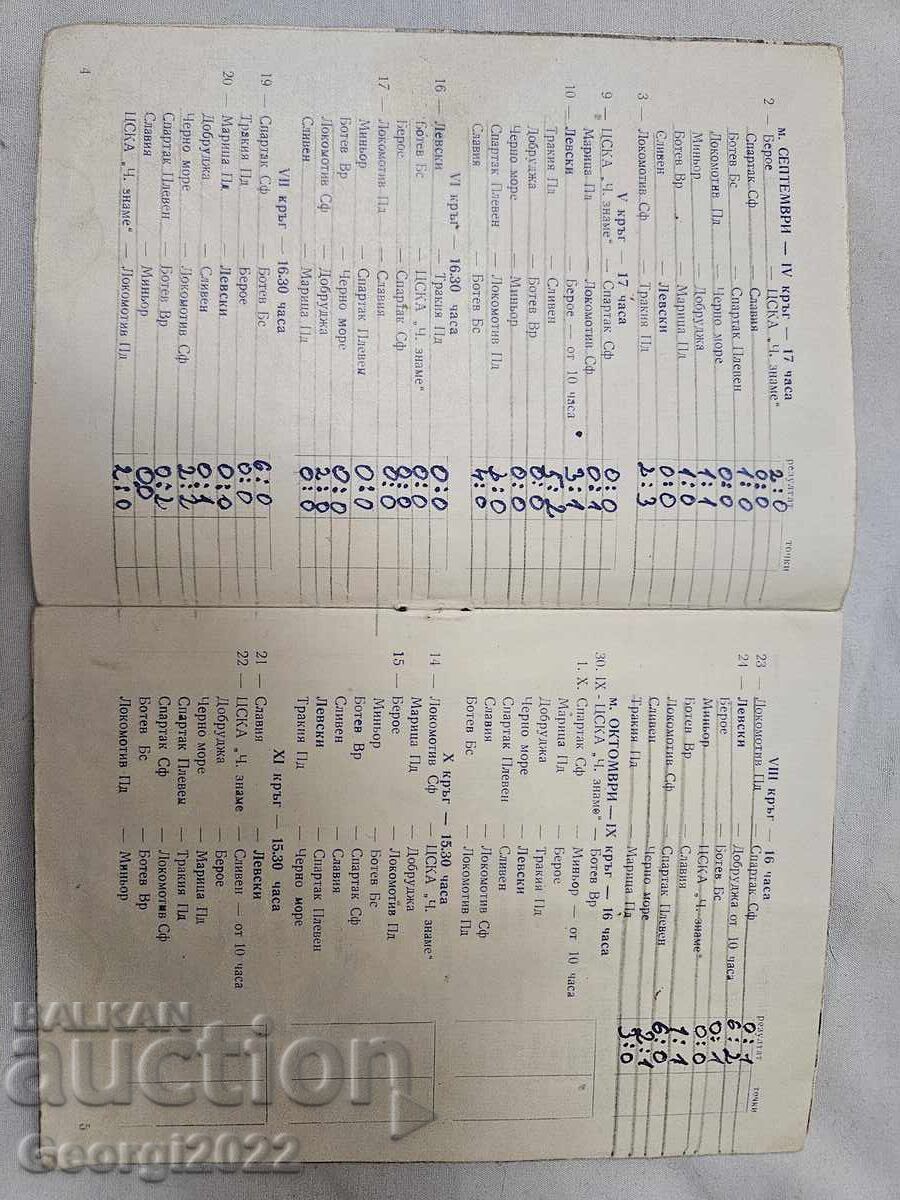 м. СЕПТЕМВРИ — IV кръг — 17 часа
резултат точки
2 — Берое — ЦСКА „Ч. знаме" 2:0
Спартак Сф — Славия 0:0
Ботев Бс — Спартак Плевен 1:0
Локомотив Пд — Черно море 0:0
Миньор — Добруджа 1:1
Ботев Вр — Марица Пд 1:0
Сливен — Левски 0:0
3 — Локомотив Сф — Тракия Пд 2:3
V кръг — 17 часа
9 — ЦСКА „Ч. знаме" — Спартак Сф 0:0
Марица Пд — Локомотив Сф 0:1
10 — Левски — Берое — от 10 часа 3:1
Тракия Пд — Сливен 5:2
Добруджа — Ботев Вр 0:0
Черно море — Миньор 0:0
Спартак Плевен — Локомотив Пд 2:0
Славия — Ботев Бс 4:0
VI кръг — 16.30 часа
16 — Левски — Тракия Пд 0:0
Ботев Бс — ЦСКА „Ч. знаме" 0:0
Берое — Спартак Сф 0:0
17 — Локомотив Пд — Славия 0:0
Миньор — Спартак Плевен 0:0
Ботев Вр — Черно море 0:0
Локомотив Сф — Добруджа 2:0
Сливен — Марица Пд 0:0
VII кръг — 16.30 часа
19 — Спартак Сф — Ботев Бс 6:0
Тракия Пд — Берое 0:0
20 — Марица Пд — Левски 0:0
Добруджа — Сливен 0:1
Черно море — Локомотив Сф 2:2
Спартак Плевен — Ботев Вр 0:2
Славия — Миньор 0:0
ЦСКА „Ч. знаме" — Локомотив Пд 2:0
4
VIII кръг — 16 часа
резултат точки
23 — Локомотив Пд — Спартак Сф 0:1
24 — Левски — Добруджа от 10 часа 6:2
Берое — Ботев Бс 0:1
Миньор — ЦСКА „Ч. знаме" 0:0
Ботев Вр — Славия 1:1
Локомотив Сф — Спартак Плевен 6:0
Сливен — Черно море 2:1
Тракия Пд — Марица Пд 3:0
м. ОКТОМВРИ — IX кръг — 16 часа
30. IX - ЦСКА „Ч. знаме" — Ботев Вр
1. X. Спартак Сф — Миньор — от 10 часа
Марица Пд — Берое
Добруджа — Тракия Пд
Черно море — Левски
Спартак Плевен — Сливен
Славия — Локомотив Сф
Ботев Бс — Локомотив Пд
X кръг — 15.30 часа
14 — Локомотив Сф — ЦСКА „Ч. знаме"
Марица Пд — Добруджа
15 — Берое — Локомотив Пд
Миньор — Ботев Бс
Ботев Вр — Спартак Сф
Сливен — Славия
Левски — Спартак Плевен
Тракия Пд — Черно море
XI кръг — 15.30 часа
21 — Славия — Левски
22 — ЦСКА „Ч. знаме — Сливен — от 10 часа
Добруджа — Берое
Черно море — Марица Пд
Спартак Плевен — Тракия Пд
Спартак Сф — Локомотив Сф
Ботев Бс — Ботев Вр
Локомотив Пд — Миньор
5
BALKAN
auction
Georgi2022